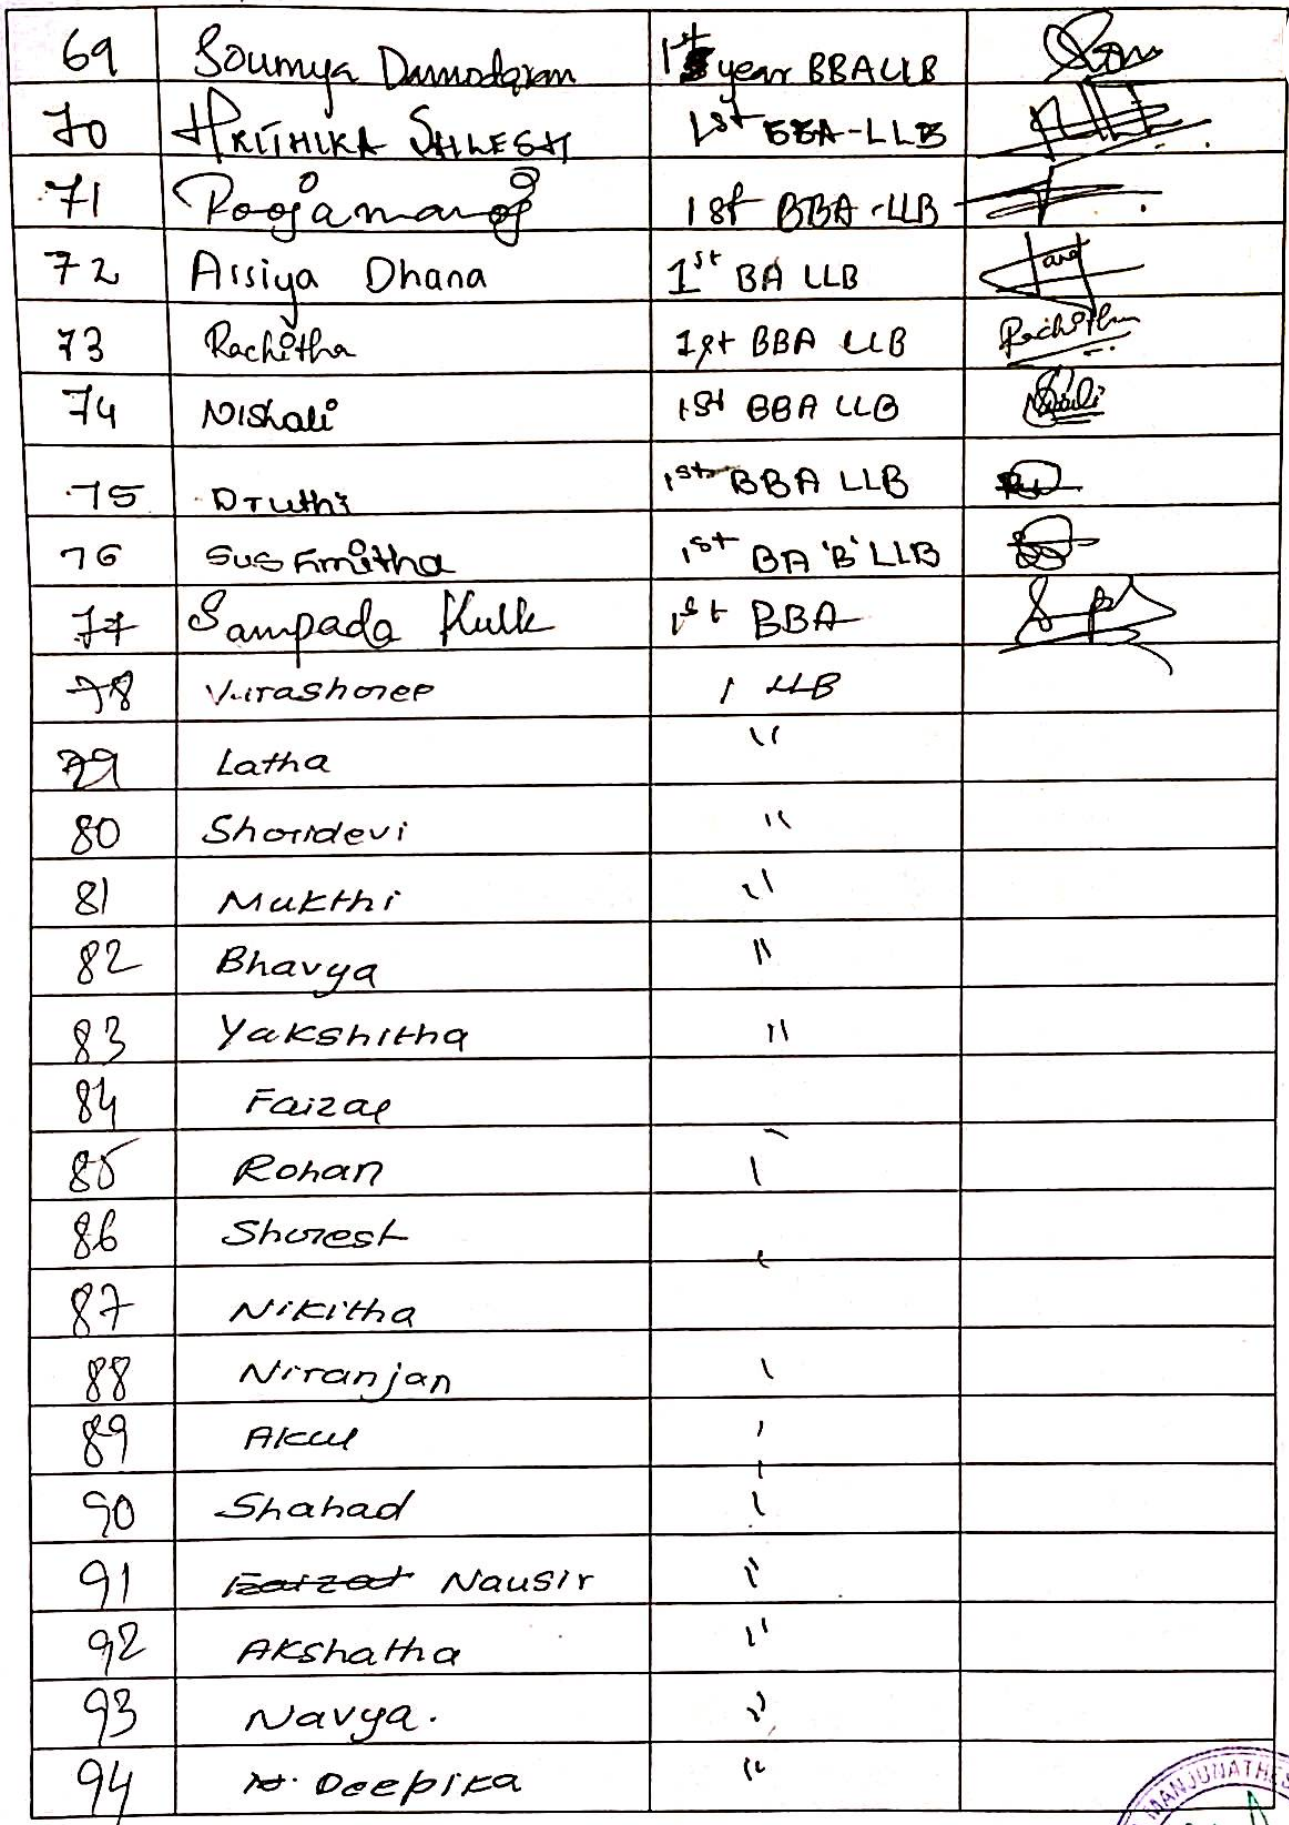 69 Soumya Damodaran 1st year BBA LLB Sou
70 HRITHIKA SHLESH 1st BBA-LLB
71 Poojamanoj 1st BBA-LLB
72 Assiya Dhana 1st BA LLB
73 Rachitha 1st BBA LLB Rachitha
74 Nishali 1st BBA LLB Nishali
75 Druthi 1st BBA LLB
76 1st BA 'B' LLB
77 Sampada Kulk 1st BBA
78 1 LLB
79 Latha "
80 Shridevi "
81 Mukthi "
82 Bhavya "
83 Yakshitha "
84 Faizal
85 Rohan
86
87 Nikitha
88 Niranjan
89 Akul
90 Shahad
91 Nausir "
92 Akshatha "
93 Navya. "
94 Deepika "
MANJUNATHES